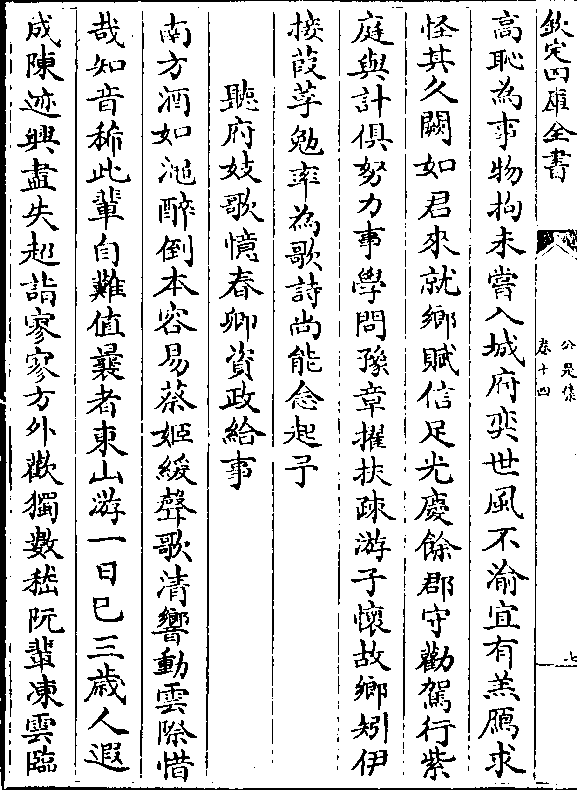 欽定四庫全書
公是集
卷十四
七
高恥為事物拘未嘗入城府奕世風不渝宜有羔鴈求
怪其久闕如君來就鄉賦信足光慶餘郡守勸駕行紫
庭與計俱努力事學問豫章擢扶疎游子懷故鄉矧伊
接葭莩勉率為歌詩尚能念起予
聽府妓歌憶春卿資政給事
南方酒如池醉倒本容易蔡姬緩聲歌清響動雲際惜
哉知音稀此輩自難值曩者東山游一日已三歲人遐
成陳迹興盡失起詣寥寥方外歡獨數嵇阮輩凍雲臨